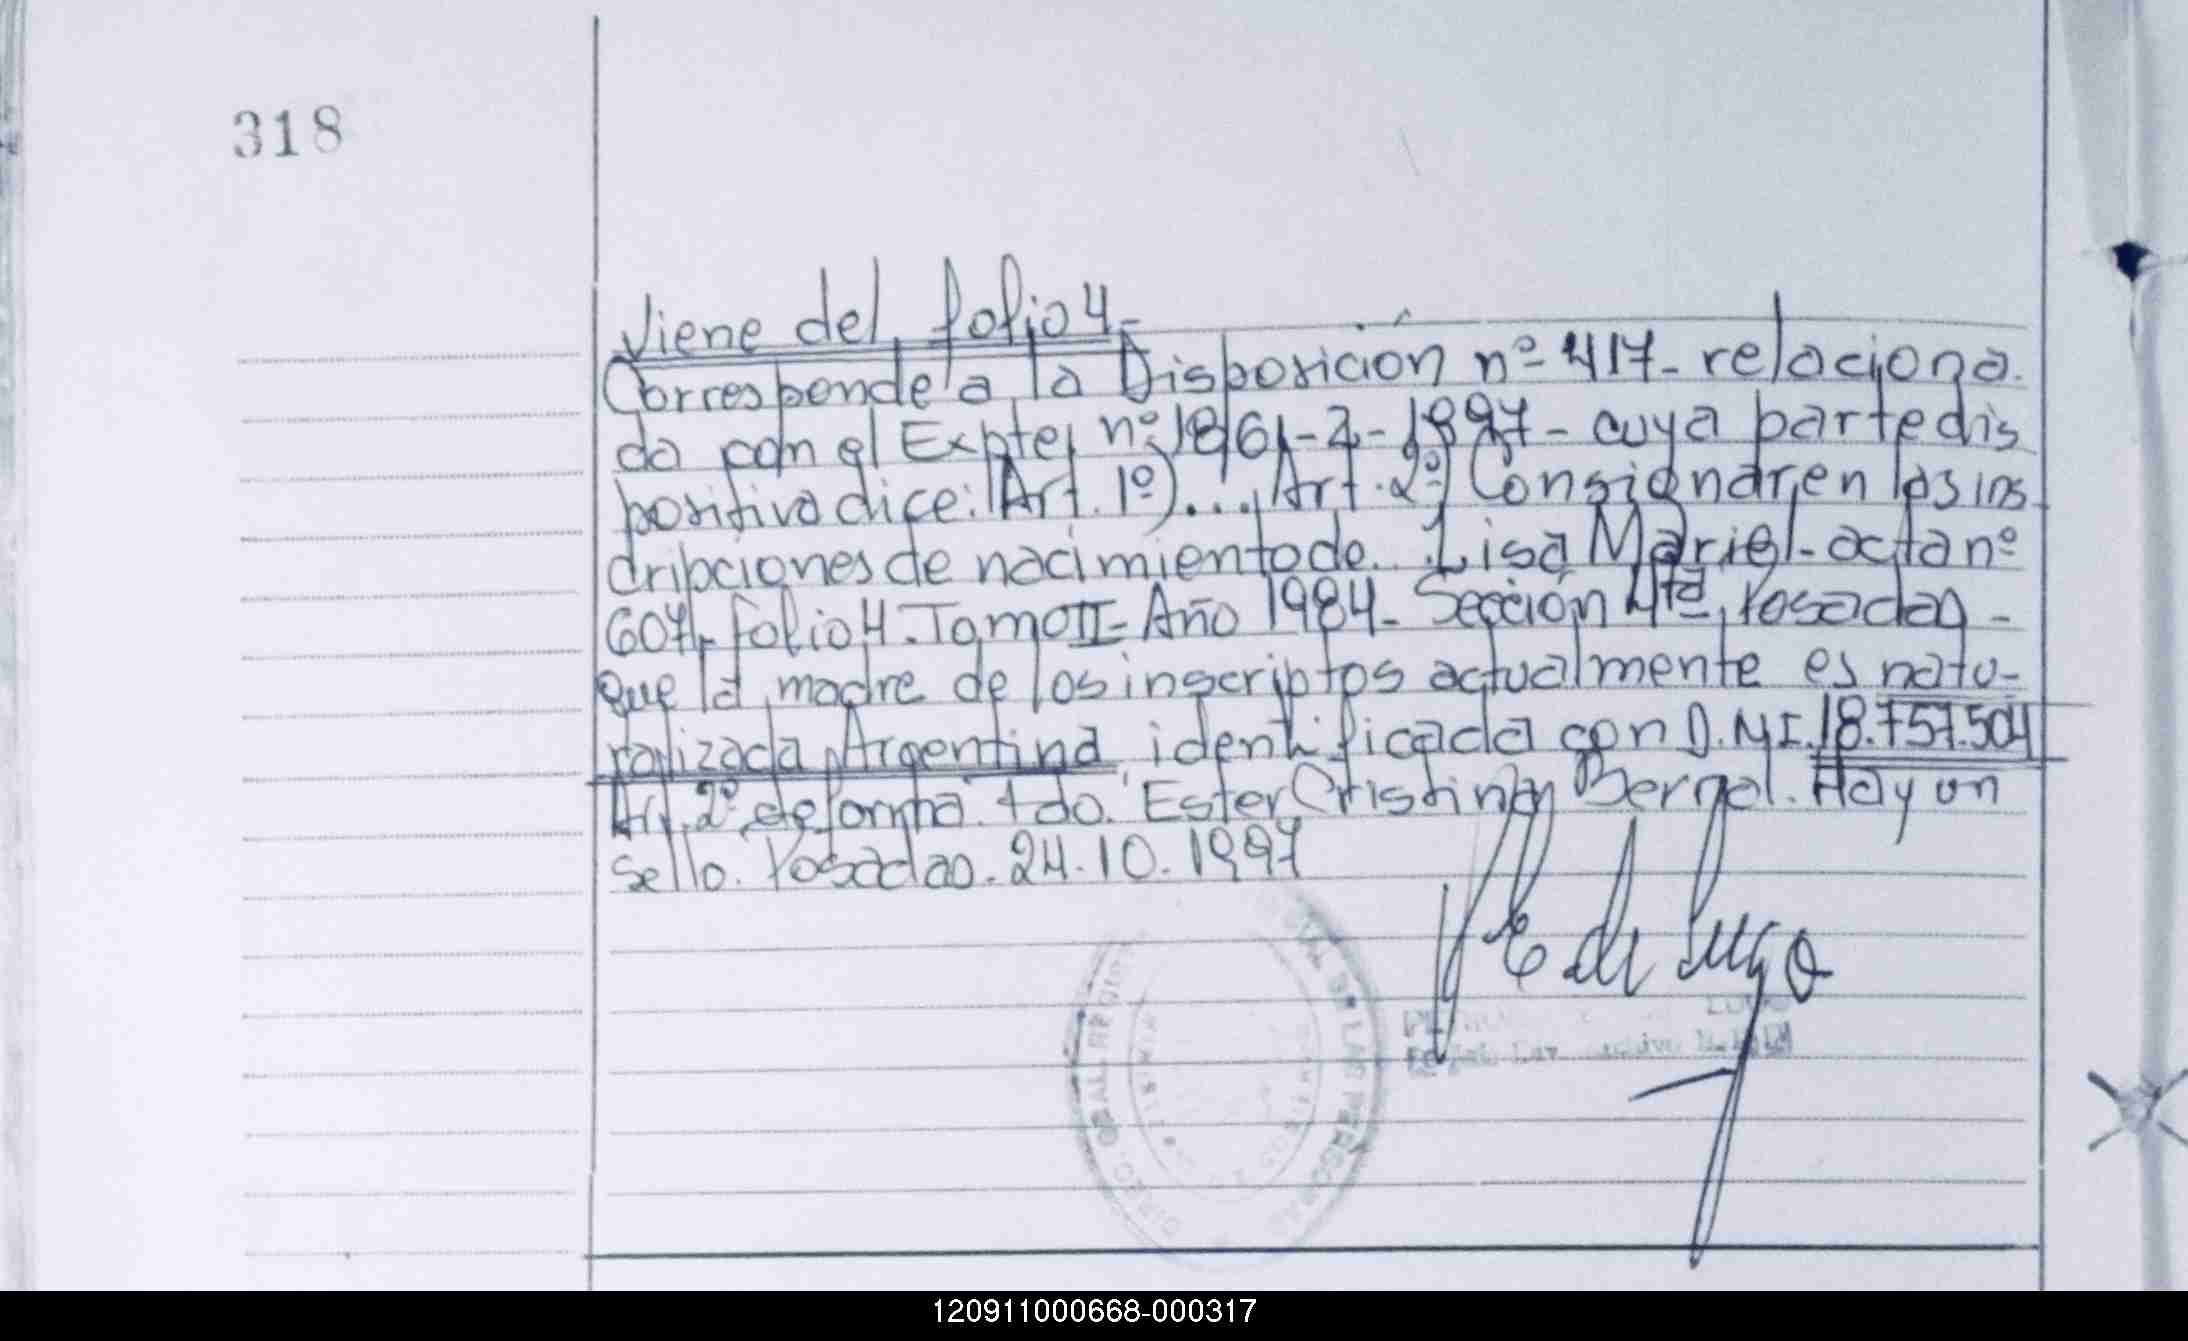 318
Viene del folio 4-
Corresponde a la Disposición nº 417- relaciona
do con el Expte. nº 1861-2-1997- cuya parte dis
positiva dice: (Art. 1º)...., Art. 2º) Consignar, en las ins
cripciones de nacimiento de.. Lisa Mariel- acta nº
607- folio 4. Tomo II- Año 1984- Sección 4ta, Posadas -
que la madre de los inscriptos actualmente es natu-
ralizada Argentina identificada con D.N.I. 18.757.504
Art. 2º de forma. Fdo. Ester Cristina Bernal. Hay un
sello. Posadas. 24.10.1997
E de Lugo
DIREC. GRAL. REGISTRO DE LAS PERSONAS
120911000668-000317